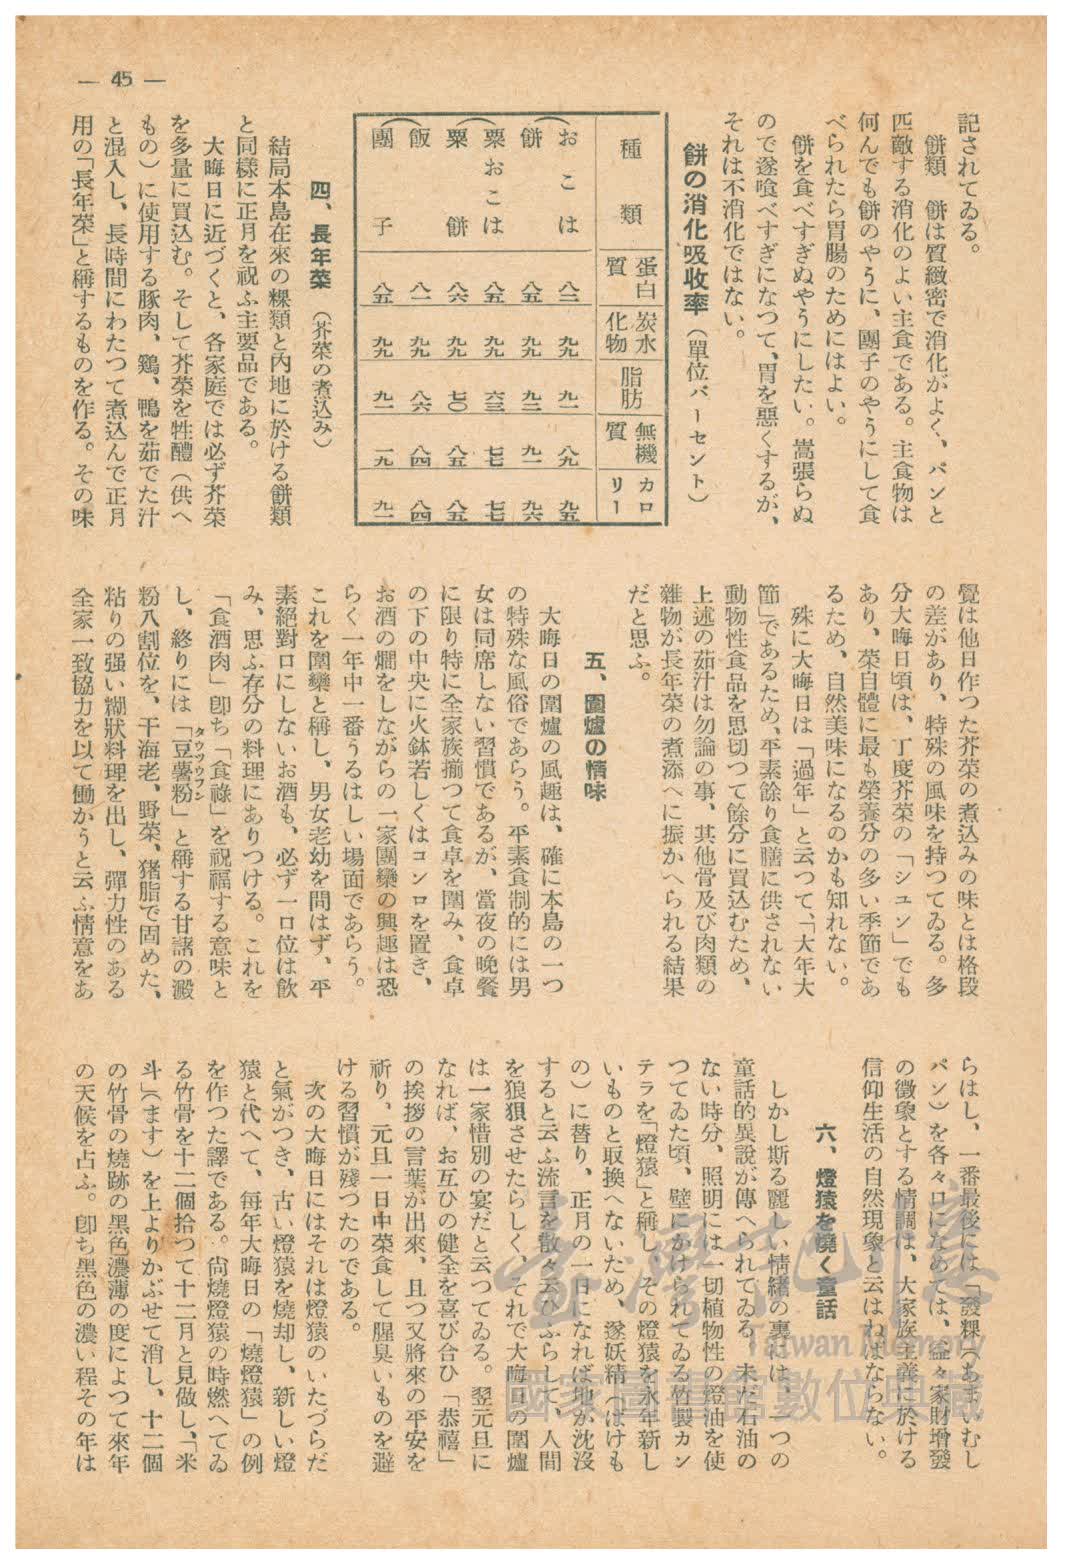 — 45 —
記されてゐる。
餅類　餅は質緻密で消化がよく、パンと
匹敵する消化のよい主食である。主食物は
何んでも餅のやうに、團子のやうにして食
べられたら胃腸のためにはよい。
餅を食べすぎぬやうにしたい。嵩張らぬ
ので遂喰べすぎになつて、胃を惡くするが、
それは不消化ではない。
餅の消化吸收率（單位パーセント）
種類　蛋白質　炭水化物　脂肪　無機質　カロリー
おこは　八二　九九　九一　八九　九五
（餅）　八五　九九　九二　九一　九六
粟おこは　八五　九九　六三　七七　七七
粟餅　八六　九九　七〇　八五　八五
（飯）　八一　九九　八六　八四　八四
團子　八五　九九　九一　一九　九一
四、長年菜（芥菜の煮込み）
結局本島在來の粿類と內地に於ける餅類
と同樣に正月を祝ふ主要品である。
大晦日に近づくと、各家庭では必ず芥菜
を多量に買込む。そして芥菜を牲醴（供へ
もの）に使用する豚肉、鷄、鴨を茹でた汁
と混入し、長時間にわたつて煮込んで正月
用の「長年菜」と稱するものを作る。その味
覺は他日作つた芥菜の煮込みの味とは格段
の差があり、特殊の風味を持つてゐる。多
分大晦日頃は、丁度芥菜の「シユン」でも
あり、菜自體に最も榮養分の多い季節であ
るため、自然美味になるのかも知れない。
殊に大晦日は「過年」と云つて、「大年大
節」であるため、平素餘り食膳に供されない
動物性食品を思切つて餘分に買込むため、
上述の茹汁は勿論の事、其他骨及び肉類の
雜物が長年菜の煮添へに振かへられる結果
だと思ふ。
五、圍爐の情味
大晦日の圍爐の風趣は、確に本島の一つ
の特殊な風俗であらう。平素食制的には男
女は同席しない習慣であるが、當夜の晚餐
に限り特に全家族揃つて食卓を圍み、食卓
の下の中央に火鉢若しくはコンロを置き、
お酒の燗をしながらの一家團欒の興趣は恐
らく一年中一番うるはしい場面であらう。
これを圍欒と稱し、男女老幼を問はず、平
素絕對口にしないお酒も、必ず一口位は飮
み、思ふ存分の料理にありつける。これを
「食酒肉」卽ち「食祿」を祝福する意味と
し、終りには「豆薯粉」と稱する甘諸の澱
タウツウフン
粉八割位を、干海老、野菜、猪脂で固めた、
粘りの强い糊狀料理を出し、彈力性のある
全家一致協力を以て働かうと云ふ情意をあ
らはし、一番最後には「發粿（あまいむし
パン）を各々口になめては、益々家財增發
の徵象とする情調は、大家族主義に於ける
信仰生活の自然現象と云はねばならない。
六、燈猿を燒く童話
しかし斯る麗しい情緖の裏には、一つの
童話的異說が傳へられてゐる。未だ石油の
ない時分、照明には一切植物性の燈油を使
つてゐた頃、壁にかけられてゐる竹製カン
テラを「燈猿」と稱し、その燈猿を永年新し
いものと取換へないため、遂妖精（ばけも
の）に替り、正月の一日になれば地が沈沒
すると云ふ流言を散々云ひふらして、人間
を狼狽させたらしく、それで大晦日の圍爐
は一家惜別の宴だと云つてゐる。翌元旦に
なれば、お互ひの健全を喜び合ひ「恭禧」
の挨拶の言葉が出來、且つ又將來の平安を
祈り、元旦一日中菜食して腥臭いものを避
ける習慣が殘つたのである。
次の大晦日にはそれは燈猿のいたづらだ
と氣がつき、古い燈猿を燒却し、新しい燈
猿と代へて、每年大晦日の「燒燈猿」の例
を作つた譯である。尙燒燈猿の時燃へてゐ
る竹骨を十二個拾つて十二月と見做し、「米
斗」（ます）を上よりかぶせて消し、十二個
の竹骨の燒跡の黑色濃薄の度によつて來年
の天候を占ふ。卽ち黑色の濃い程その年は
臺灣記憶
Taiwan Memory
國家圖書館數位典藏